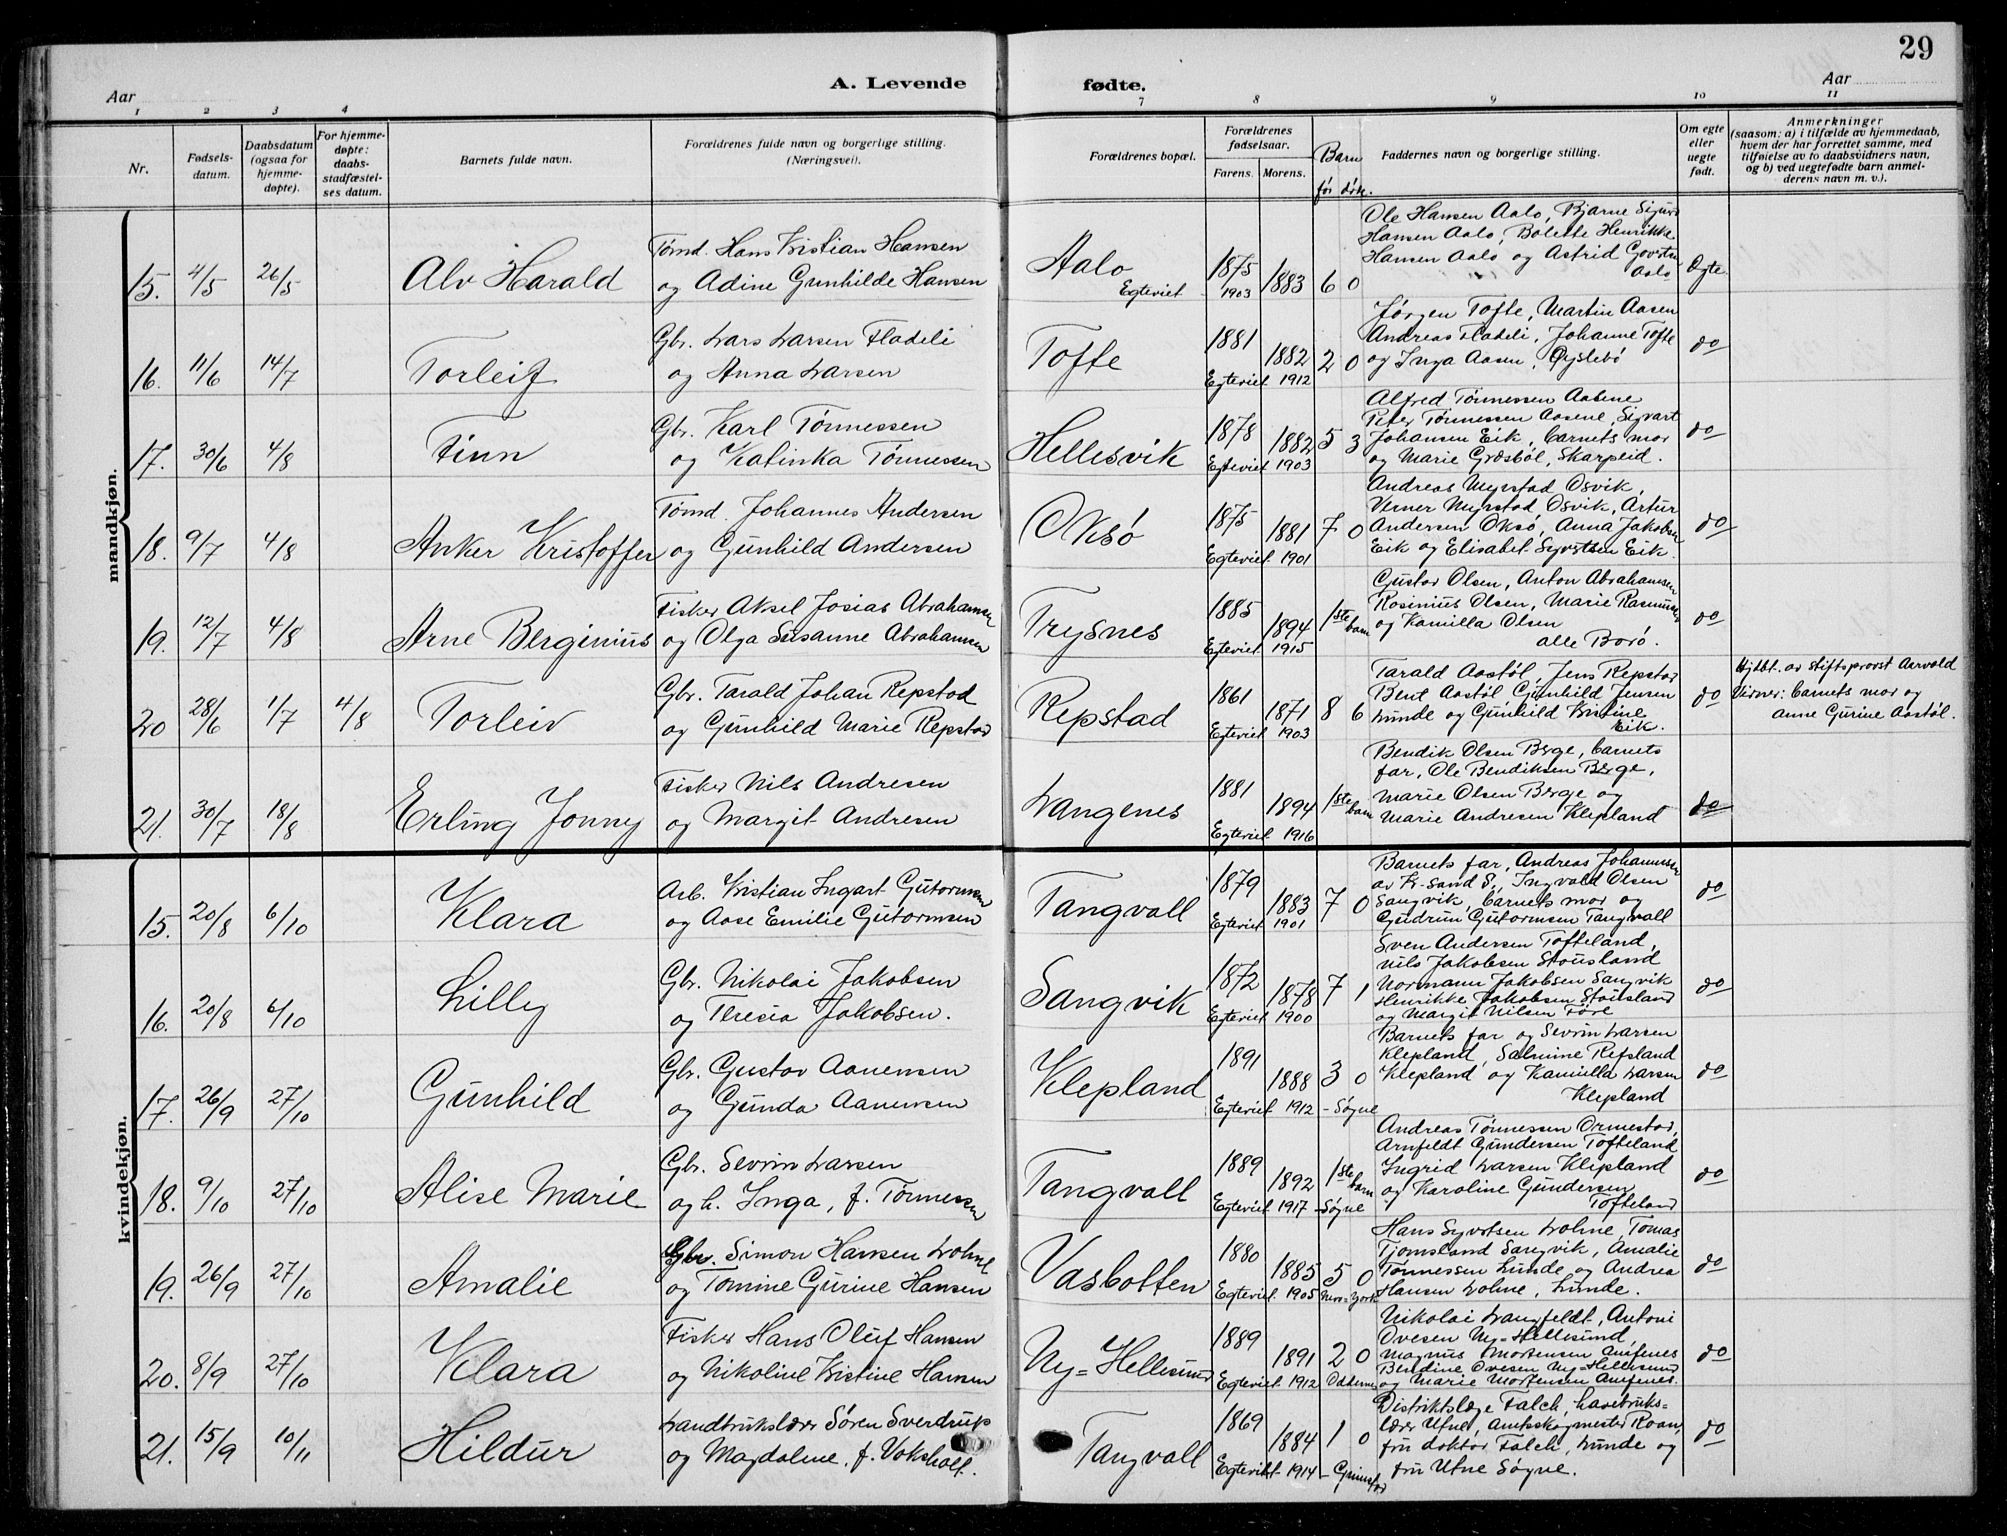 29
Aar
A. Levende fødte.
Aar
1 2 3 4 7 8 9 10 11
Nr.
Fødsels-
datum.
Daabsdatum
(ogsaa for
hjemme-
døpte).
For hjemme-
døpte:
daabs-
stadfæstel-
ses datum.
Barnets fulde navn.
Forældrenes fulde navn og borgerlige stilling.
(Næringsvei).
Forældrenes bopæl.
Forældrenes
fødselsaar.
Farens. Morens.
Barn
før døde.
Faddernes navn og borgerlige stilling.
Om egte
eller
uegte
født.
Anmerkninger
(saasom: a) i tilfælde av hjemmedaab,
hvem der har forrettet samme, med
tilføielse av to daabsvidners navn,
og b) ved uegtefødte barn anmel-
derens navn m. v.).
mandkjøn.
15. 4/5 26/5 Alv Harald
Tømd. Hans Kristian Hansen
og Adine Gunhilde Hansen
Aalo
Egteviet
1875 1903 1883 6 0
Ole Hansen Aalo, Bjarne Sigurd
Hansen Aalo, Bolette Henrikke
Hansen Aalo og Astrid
Aalo
Egte
16. 11/6 14/7 Torleif
Gbr. Lars Larsen Fladeli
og Anna Larsen
Tofte
1881 1882 2 0
Egteviet 1912
Jørgen Tofte, Martin Aasen
Andreas Fladeli, Johanne Tofte
og Inga Aasen, Øyslebø
do
17. 30/6 4/8 Finn
Gbr. Karl Tønnessen
og Katinka Tønnessen
Hellesvik
1878 1882 5 3
Egteviet 1903
Alfred Tønnessen Aasene
Peter Tønnessen Aasene, Sigvart
Johansen Eik, barnets mor
og Marie Græsbøl, Skarpeid.
do
18. 9/7 4/8 Anker Kristoffer
Tømd. Johannes Andersen
og Gunhild Andersen
Oksø
1875 1881 7 0
Egteviet 1901
Andreas Myrstad Osvik,
Verner Myrstad Osvik, Artur
Andersen Oksø, Anna Jakobsen
Eik og Elisabet Syvertsen Eik.
do
19. 12/7 4/8 Arne Berginius
Fisker Aksel Josias Abrahamsen
og Olga Susanne Abrahamsen
Trysnes
1885 1894 1ste barn
Egteviet 1915
Gustav Olsen, Anton Abrahamsen
Rosinius Olsen, Marie Rasmussen
og Kamilla Olsen
alle Borø.
do
20 28/6 1/7 4/8 Torleiv
Gbr. Tarald Johan Repstad
og Gunhild Marie Repstad
Repstad
1861 1871 8 6
Egteviet 1903
Tarald Aastøl, Jens Repstad
Bent Aastøl Gunhild Jensen
Lunde og Gunhild Kristine
Eik.
do
Hjdbt. av stiftsprovst Aarvold
Vidner: barnets mor og
Anne Gurine Aastøl.
21. 30/7 18/8 Erling Jonny
Fisker Nils Andresen
og Margit Andresen
Langenes
1881 1894 1ste barn
Egteviet 1916
Bendik Olsen Berge, barnets
far, Ole Bendiksen Berge,
Marie Olsen Berge og
Marie Andresen Klepland
do
kvindekjøn.
15. 20/8 6/10 Klara
Arb. Kristian Ingart Gutormsen
og Aase Emilie Gutormsen
Tangvall
1879 1883 7 0
Egteviet 1901
Barnets far, Andreas Johannessen
av Kr-sand S., Ingvald Olsen
Sangvik, barnets mor og
Gudrun Gutormsen Tangvall
do
16. 20/8 6/10 Lilly
Gbr. Nikolai Jakobsen
og Teresia Jakobsen.
Sangvik
1872 1878 7 1
Egteviet 1900
Sven Andersen Tofteland,
Nils Jakobsen Stousland
Normann Jakobsen Sangvik
Henrikke Jakobsen Stousland
og Margit Nilsen Føre
do
17. 26/9 27/10 Gunhild
Gbr. Gustav Aanensen
og Gunda Aanensen
Klepland
1891 1888 3 0
Egteviet 1912 - Søgne
Barnets far og Sevrin Larsen
Klepland, Salmine Refsland
Klepland og Kamilla Larsen
Klepland
do
18. 9/10 27/10 Alise Marie
Gbr. Sevrin Larsen
og h. Inga, f. Tønnessen
Tangvall
1889 1892 1ste barn
Egteviet 1917 - Søgne
Andreas Tønnessen Ormestad,
Arnfeldt Gundersen Tofteland
Ingrid Larsen Klepland
og Karoline Gundersen
Tofteland
do
19. 26/9 27/10 Amalie
Gbr. Simon Hansen Lohne
og Tomine Gurine Hansen
Vasbotten
1880 1885 5 0
Egteviet 1905 New-York
Hans Syvertsen Lohne, Tomas
Tjomsland Sangvik, Amalie
Tønnessen Lunde og Andrea
Hansen Lohne, Lunde.
do
20. 8/9 27/10 Klara
Fisker Hans Oluf Hansen
og Nikoline Kristine Hansen
Ny-Hellesund
1889 1891 2 0
Egteviet 1912 Oddernes
Nikolai Langfeldt, Antoni
Ovesen Ny-Hellesund,
Magnus Mortensen Amfenes
Berdine Ovesen Ny-Hellesund
og Marie Mortensen Amfenes.
do
21. 15/9 10/11 Hildur
Landbrukslærer Søren Sverdrup
og Magdalene, f. Voksholt.
Tangvall
1869 1884 1 0
Egteviet 1914 - Grimstad
Distriktslæge Falch, havebruks-
lærer Utne, Amtsskogmester Roan,
fru doktor Falch, Lunde og
fru Utne Søgne.
do